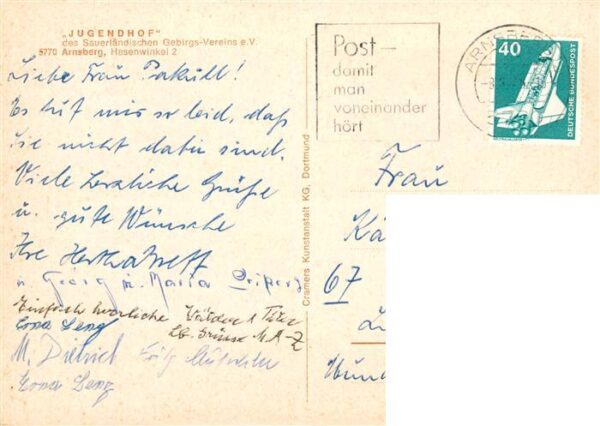 „JUGENDHOF"
des Sauerländischen Gebirgs-Vereins e.V.
5770 Arnsberg, Hasenwinkel 2
Liebe Frau Pakull!
Es tut mir so leid, daß
Sie nicht dabei sind.
Viele herzliche Grüße
u. gute Wünsche
Ihre Hertha
u. Georg u. Maria
Einfach herrliche Wälder
Erna Lenz
M. Dietrich Fritz
Erna Lenz
Cramers Kunstanstalt KG, Dortmund
Post–
damit
man
voneinander
hört
ARNSBERG
40
DEUTSCHE BUNDESPOST
Frau
Kä
67